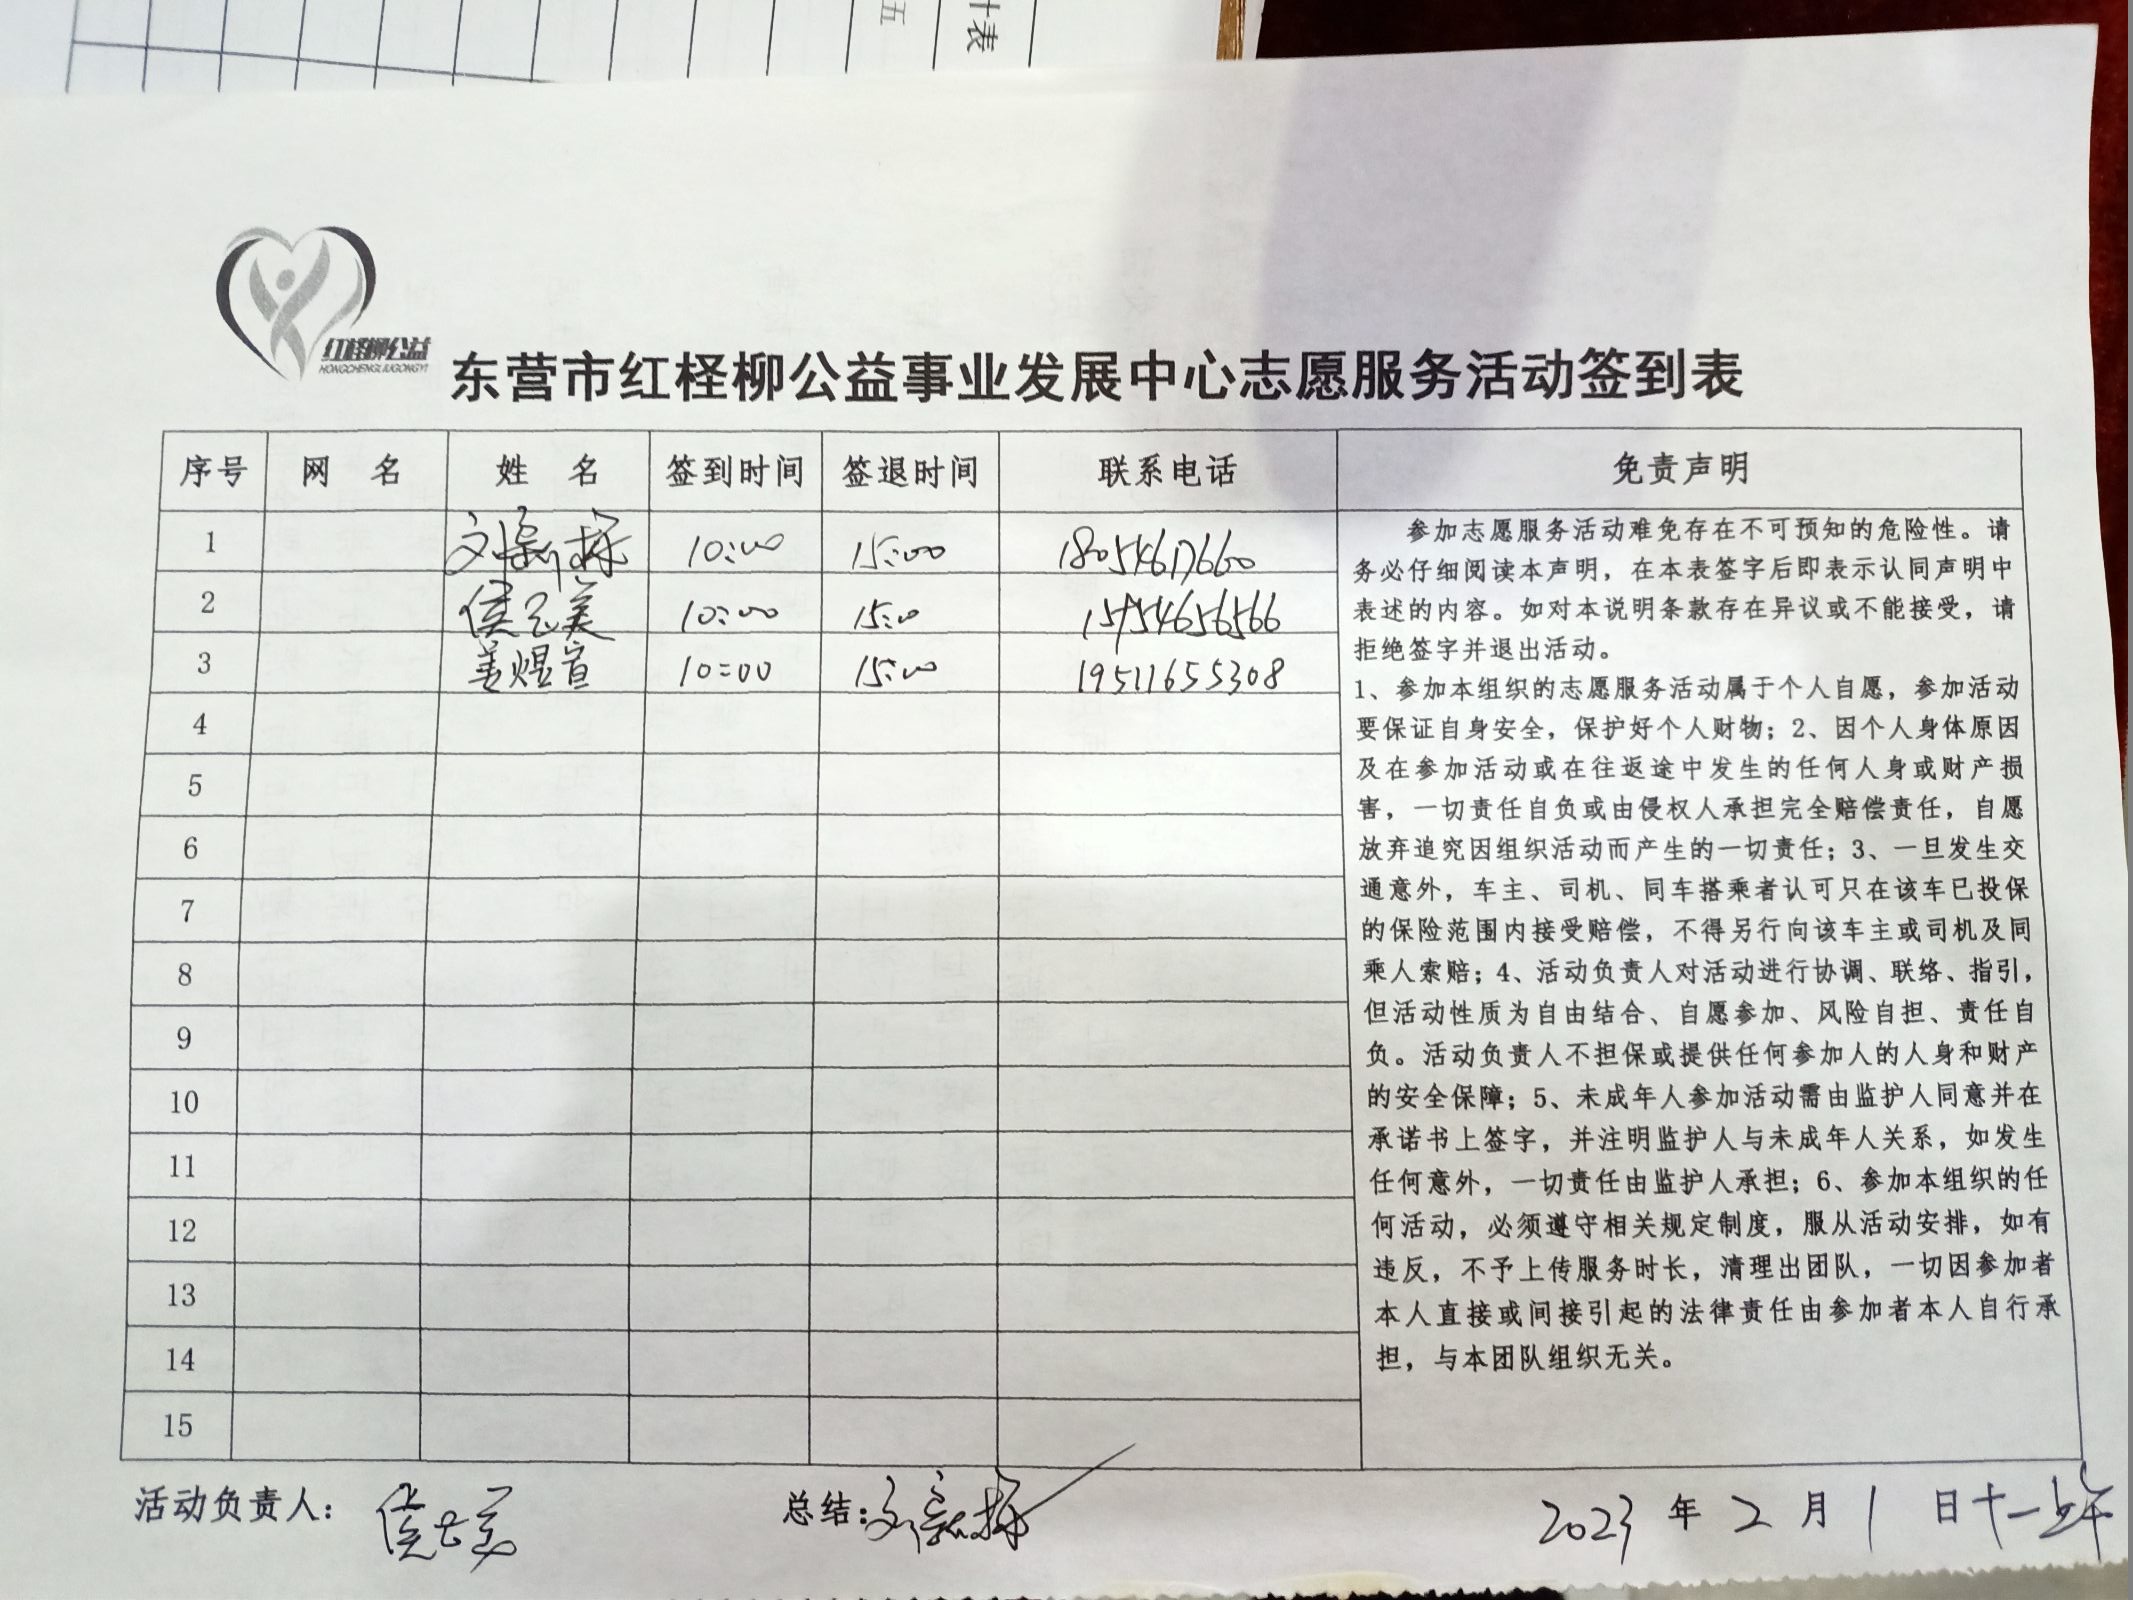 计表
五
红柽柳公益
HONGCHENGLIUGONGYI
东营市红柽柳公益事业发展中心志愿服务活动签到表
序号 网 名 姓 名 签到时间 签退时间 联系电话 免责声明
1 刘新 10:00 15:00 18054617660
2 侯 美 10:00 15:00 15954656566
3 姜煜宣 10:00 15:00 19511655308
4
5
6
7
8
9
10
11
12
13
14
15
参加志愿服务活动难免存在不可预知的危险性。请
务必仔细阅读本声明，在本表签字后即表示认同声明中
表述的内容。如对本说明条款存在异议或不能接受，请
拒绝签字并退出活动。
1、参加本组织的志愿服务活动属于个人自愿，参加活动
要保证自身安全，保护好个人财物；2、因个人身体原因
及在参加活动或在往返途中发生的任何人身或财产损
害，一切责任自负或由侵权人承担完全赔偿责任，自愿
放弃追究因组织活动而产生的一切责任；3、一旦发生交
通意外，车主、司机、同车搭乘者认可只在该车已投保
的保险范围内接受赔偿，不得另行向该车主或司机及同
乘人索赔；4、活动负责人对活动进行协调、联络、指引，
但活动性质为自由结合、自愿参加、风险自担、责任自
负。活动负责人不担保或提供任何参加人的人身和财产
的安全保障；5、未成年人参加活动需由监护人同意并在
承诺书上签字，并注明监护人与未成年人关系，如发生
任何意外，一切责任由监护人承担；6、参加本组织的任
何活动，必须遵守相关规定制度，服从活动安排，如有
违反，不予上传服务时长，清理出团队，一切因参加者
本人直接或间接引起的法律责任由参加者本人自行承
担，与本团队组织无关。
活动负责人： 侯 美 总结：刘新 2023 年 2 月 1 日